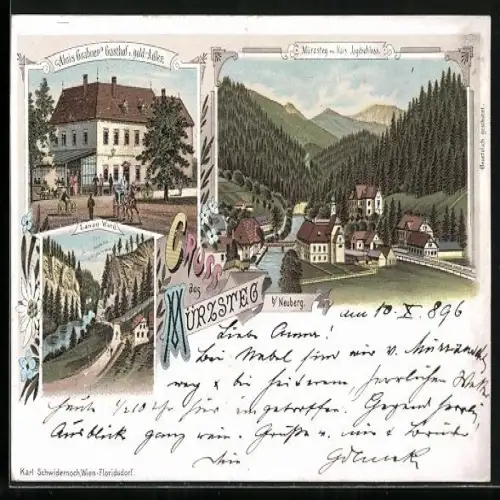 Alois Grabner's Gasthof z. gold. Adler.
Mürzsteg m. Kais. Jagdschloss.
Gesetzlich geschützt.
Lanau-Wand.
Gruss
aus
Mürzsteg
b/ Neuberg.
am 10. X. 896
Liebe Anna!
Bei Nebel sind wir v.
weg & bei heiterem, herrlichen
heute 1/2 10 Uhr hier eingetroffen. Gegend herrl.
Ausblick ganz rein. Grüße v. mir &
Dein
Karl Schwidernoch, Wien-Floridsdorf.